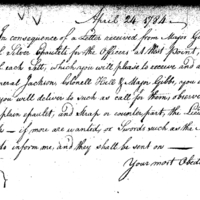 April 24 1784.
In consequence of a Letter received from Major G
Silver Epaulets for the Officers at West Point,
each Sett, which you will please to receive and
neral Jackson, Colonell Hull & Major Gibbs, you
you will deliver to such as call for them, observe
eption epaulet, and Strap or counterpart, the Lieu
if more are wanted, or Swords such as the
inform me, and they shall be sent on —
Your most Obed